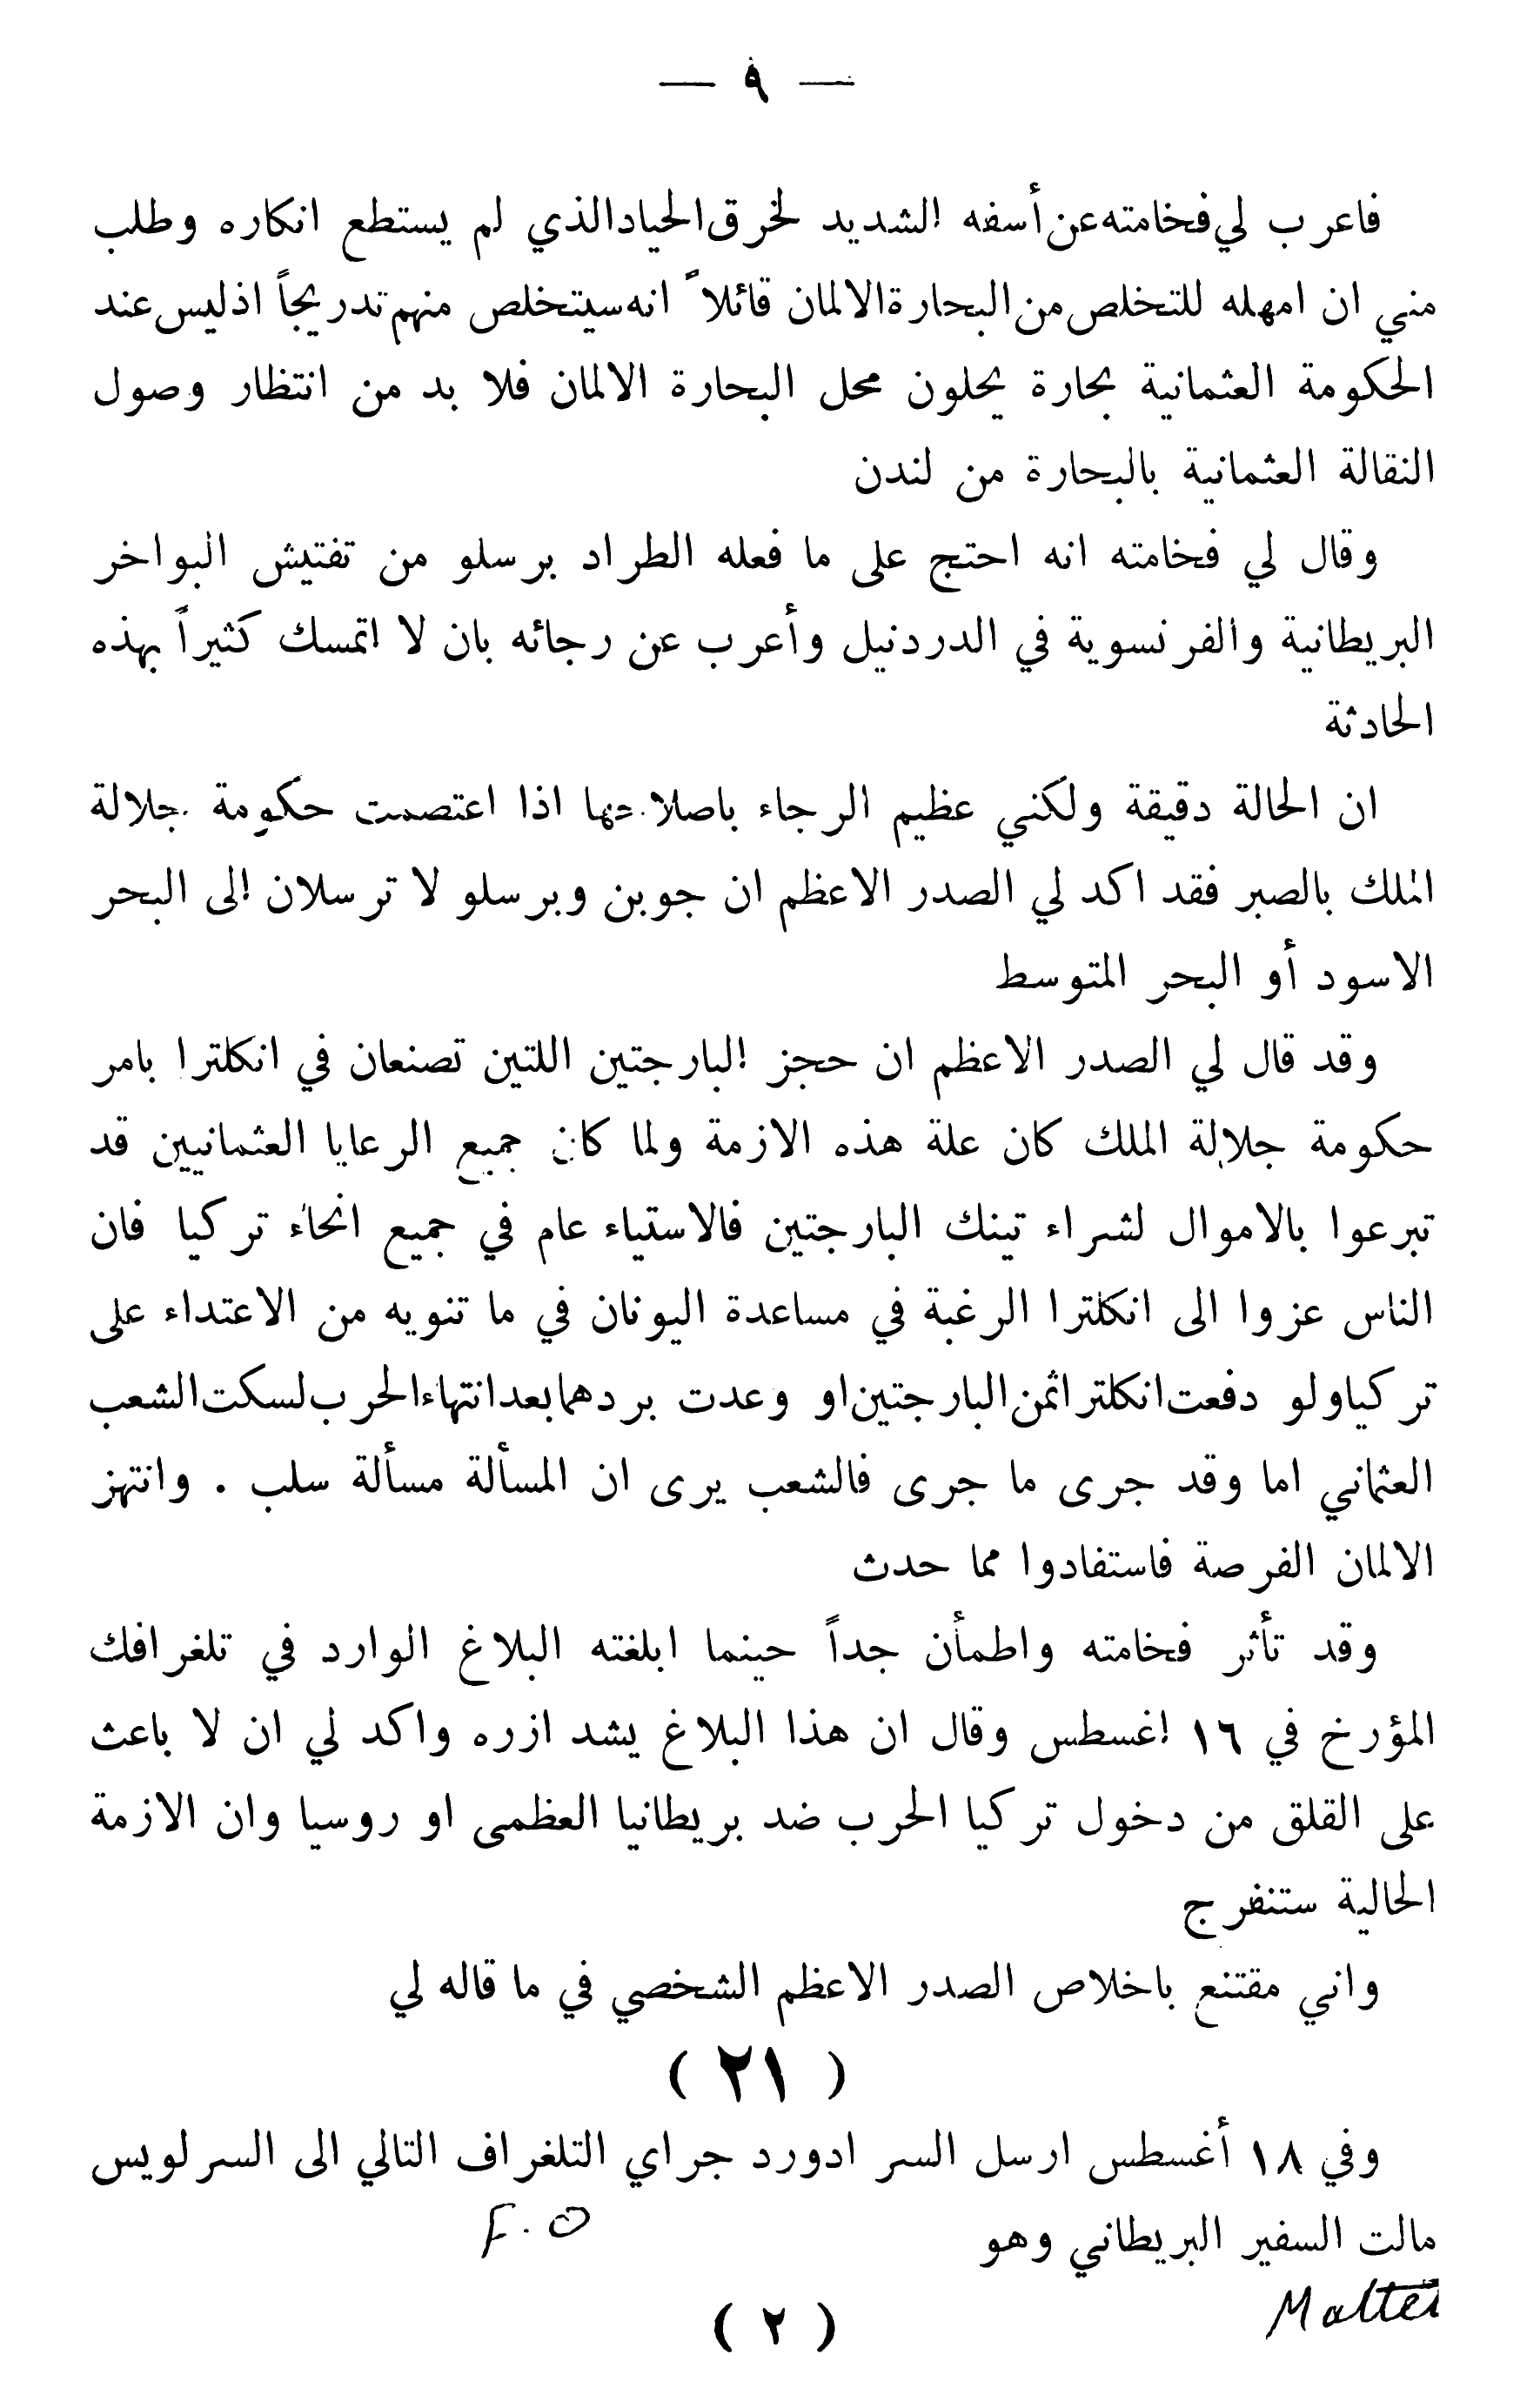 — ٩ —
فاعرب لي فخامته عن أسفه الشديد لخرق الحياد الذي لم يستطع انكاره وطلب
مني ان امهله للتخلص من البحارة الالمان قائلاً انه سيتخلص منهم تدريجاً اذ ليس عند
الحكومة العثمانية بحارة يحلون محل البحارة الالمان فلا بد من انتظار وصول
النقالة العثمانية بالبحارة من لندن
وقال لي فخامته انه احتج على ما فعله الطراد برسلو من تفتيش البواخر
البريطانية والفرنسوية في الدردنيل وأعرب عن رجائه بان لا اتمسك كثيراً بهذه
الحادثة
ان الحالة دقيقة ولكني عظيم الرجاء باصلاحها اذا اعتصمت حكومة جلالة
الملك بالصبر فقد اكد لي الصدر الاعظم ان جوبن وبرسلو لا ترسلان الى البحر
الاسود أو البحر المتوسط
وقد قال لي الصدر الاعظم ان حجز البارجتين اللتين تصنعان في انكلترا بامر
حكومة جلالة الملك كان علة هذه الازمة ولما كان جميع الرعايا العثمانيين قد
تبرعوا بالاموال لشراء تينك البارجتين فالاستياء عام في جميع انحاء تركيا فان
الناس عزوا الى انكلترا الرغبة في مساعدة اليونان في ما تنويه من الاعتداء على
تركيا ولو دفعت انكلترا ثمن البارجتين او وعدت بردهما بعد انتهاء الحرب لسكت الشعب
العثماني اما وقد جرى ما جرى فالشعب يرى ان المسألة مسألة سلب . وانتهز
الالمان الفرصة فاستفادوا مما حدث
وقد تأثر فخامته واطمأن جداً حينما ابلغته البلاغ الوارد في تلغرافك
المؤرخ في ١٦ اغسطس وقال ان هذا البلاغ يشد ازره واكد لي ان لا باعث
على القلق من دخول تركيا الحرب ضد بريطانيا العظمى او روسيا وان الازمة
الحالية ستنفرج
واني مقتنع باخلاص الصدر الاعظم الشخصي في ما قاله لي
( ٢١ )
وفي ١٨ أغسطس ارسل السر ادورد جراي التلغراف التالي الى السر لويس
مالت السفير البريطاني وهو
F.O
( ٢ )